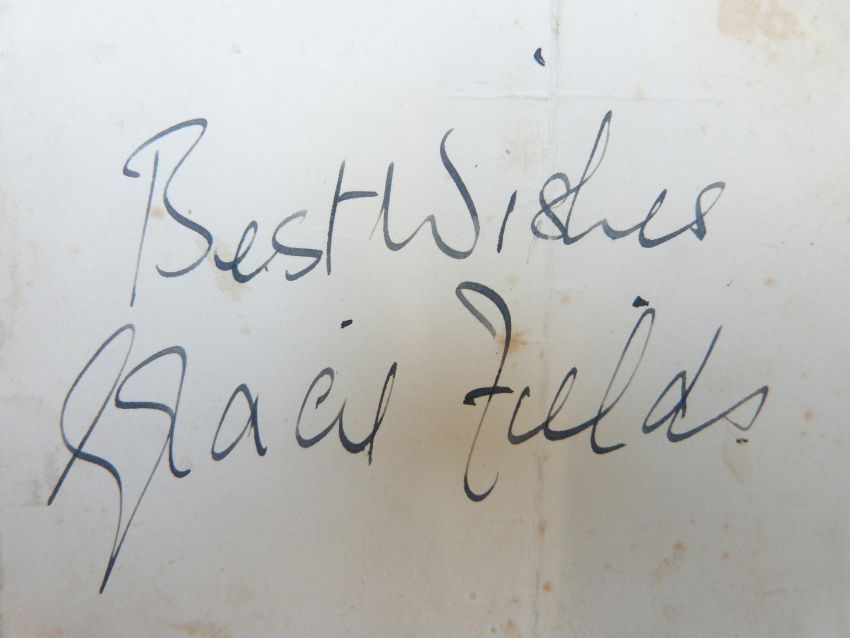 Best Wishes
Gracie Fields